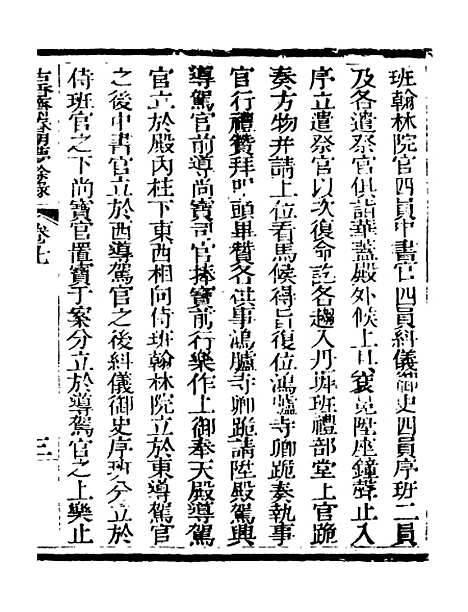 班翰林院官四員中書官四員糾儀御史四員序班二員
及各遣祭官俱詣華蓋殿外候上具袞冕陞座鐘聲止入
序立遣祭官以次復命訖各趨入丹墀班禮部堂上官跪
奏方物并請上位看馬候得旨復位鴻臚寺卿跪奏執事
官行禮贊拜叩頭畢贊各供事鴻臚寺卿跪請陞殿駕興
導駕官前導尚寶司官捧寶前行樂作上御奉天殿導駕
官立於殿內柱下東西相向侍班翰林院立於東導駕官
之後中書官立於西導駕官之後糾儀御史序班分立於
侍班官之下尚寶官置寶于案分立於導駕官之上樂止
古香齋春明夢餘錄 卷七 三